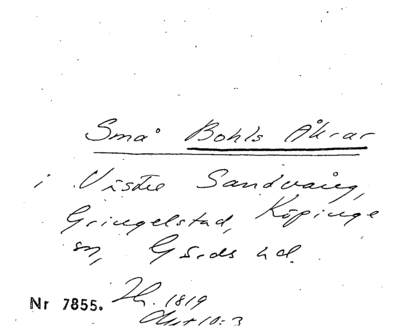 Små Bohls Åkrar
i Västre Sandvång,
Gringelstad, Köpinge
sn, Gärds hd.
Nr 7855. 1819
Akt 10:3